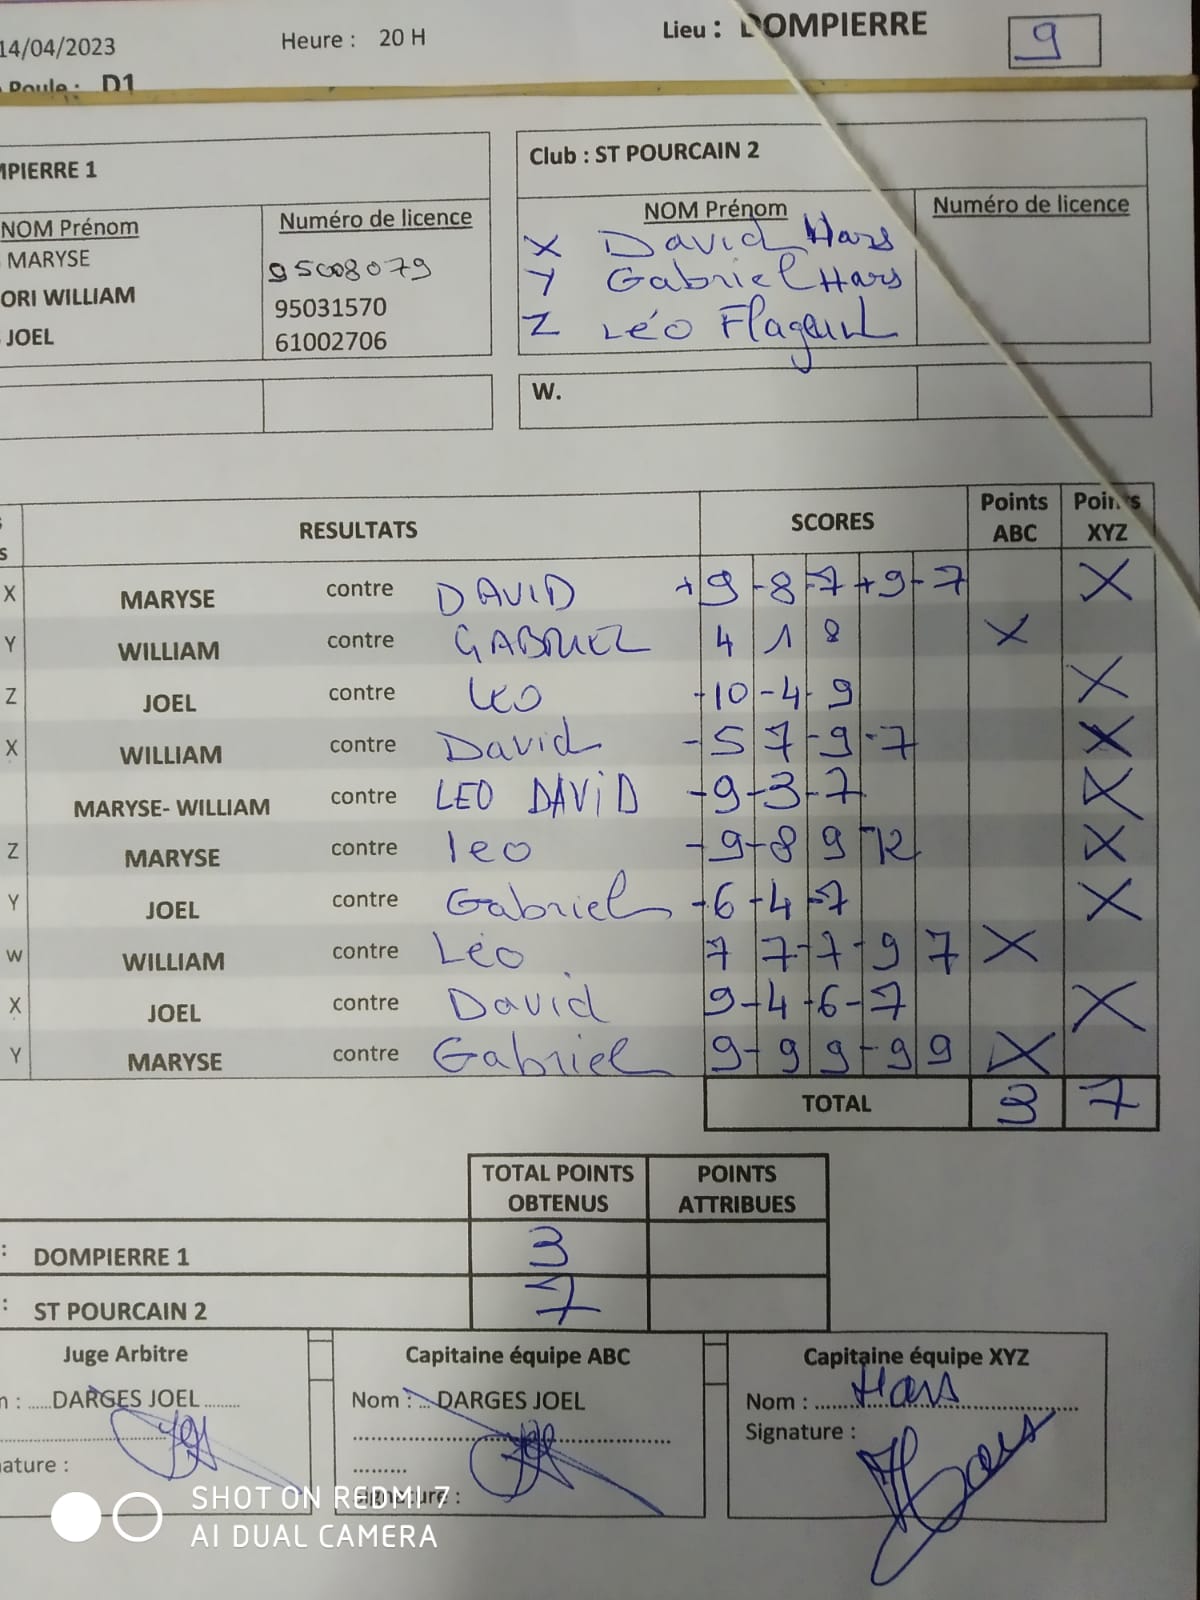 14/04/2023 Heure : 20 H Lieu : DOMPIERRE 9
Poule : D1
MPIERRE 1 Club : ST POURCAIN 2
NOM Prénom Numéro de licence NOM Prénom Numéro de licence
MARYSE 95008079 X David Hars
ORI WILLIAM 95031570 Y Gabriel Hars
JOEL 61002706 Z Léo
W.
RESULTATS SCORES Points ABC Points XYZ
X MARYSE contre DAVID +9 -8 -7 +9 -7 X
Y WILLIAM contre GABRIEL 4 1 8 X
Z JOEL contre Leo -10 -4 -9 X
X WILLIAM contre David -5 7 -9 -7 X
MARYSE- WILLIAM contre LEO DAViD -9 -3 -7 X
Z MARYSE contre leo -9 -8 9 -12 X
Y JOEL contre Gabriel -6 -4 -7 X
W WILLIAM contre Léo 7 7 -7 -9 7 X
X JOEL contre David 9 -4 -6 -7 X
Y MARYSE contre Gabriel 9 -9 9 -9 9 X
TOTAL 3 7
TOTAL POINTS OBTENUS POINTS ATTRIBUES
: DOMPIERRE 1 3
: ST POURCAIN 2 7
Juge Arbitre Capitaine équipe ABC Capitaine équipe XYZ
m : ......DARGES JOEL........ Nom : ... DARGES JOEL Nom : Hars
Signature :
nature : Signature :
SHOT ON REDMI 7
AI DUAL CAMERA